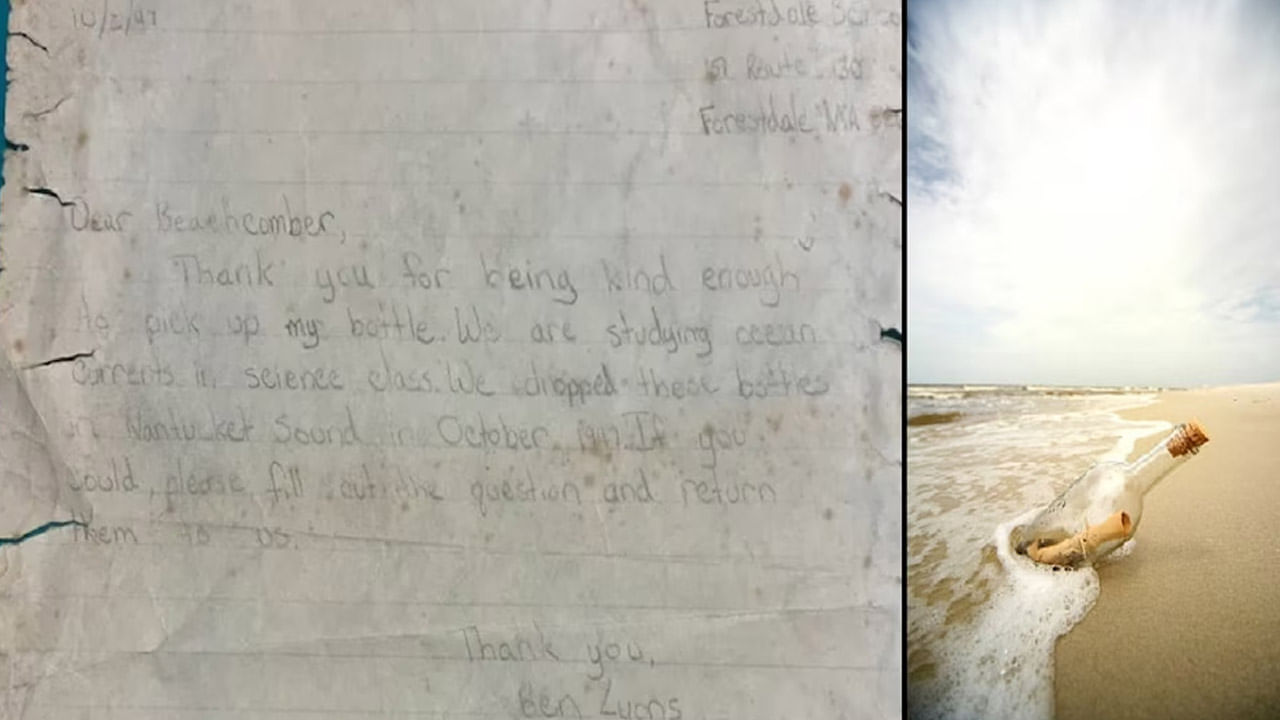 10/2/97
Forestdale Sc
151 Route 130
Forestdale, MA
Dear Beachcomber,
Thank you for being kind enough
to pick up my bottle. We are studying ocean
currents in science class. We dropped these bottles
in Nantucket Sound in October, 1997. If you
could, please fill out the question and return
them to us.
Thank you,
Ben Lyons